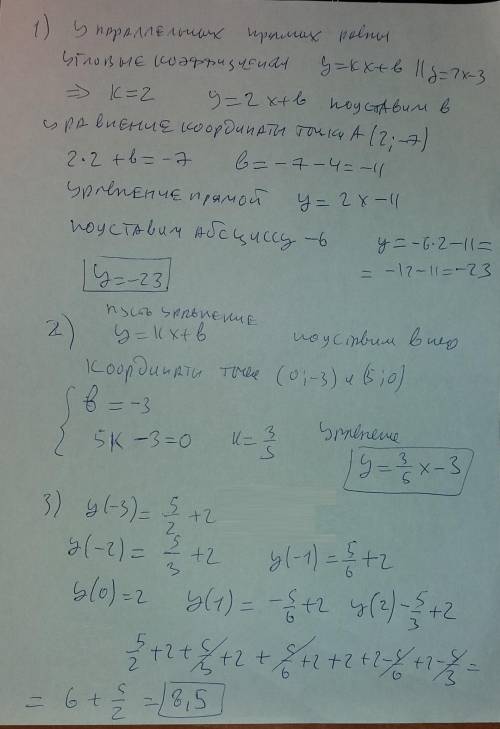 1) У параллельных прямых равны
угловые коэффициенты y=kx+b || y=2x-3
⇒ k=2 y=2x+b подставим в
уравнение координаты точки A(2;-7)
2·2+b=-7 b=-7-4=-11
уравнение прямой y=2x-11
подставим абсциссу -6 y=-6·2-11=
y=-23 =-12-11=-23
2) пусть уравнение
y=kx+b подставим в него
координаты точек (0;-3) и (5;0)
{ b=-3
5k-3=0 k=3/5 уравнение
y=3/5x-3
3) y(-3)=5/2+2
y(-2)=5/3+2 y(-1)=5/6+2
y(0)=2 y(1)=-5/6+2 y(2)-5/3+2
5/2+2+5/3+2+5/6+2+2+2-5/6+2-5/3=
=6+5/2=8,5